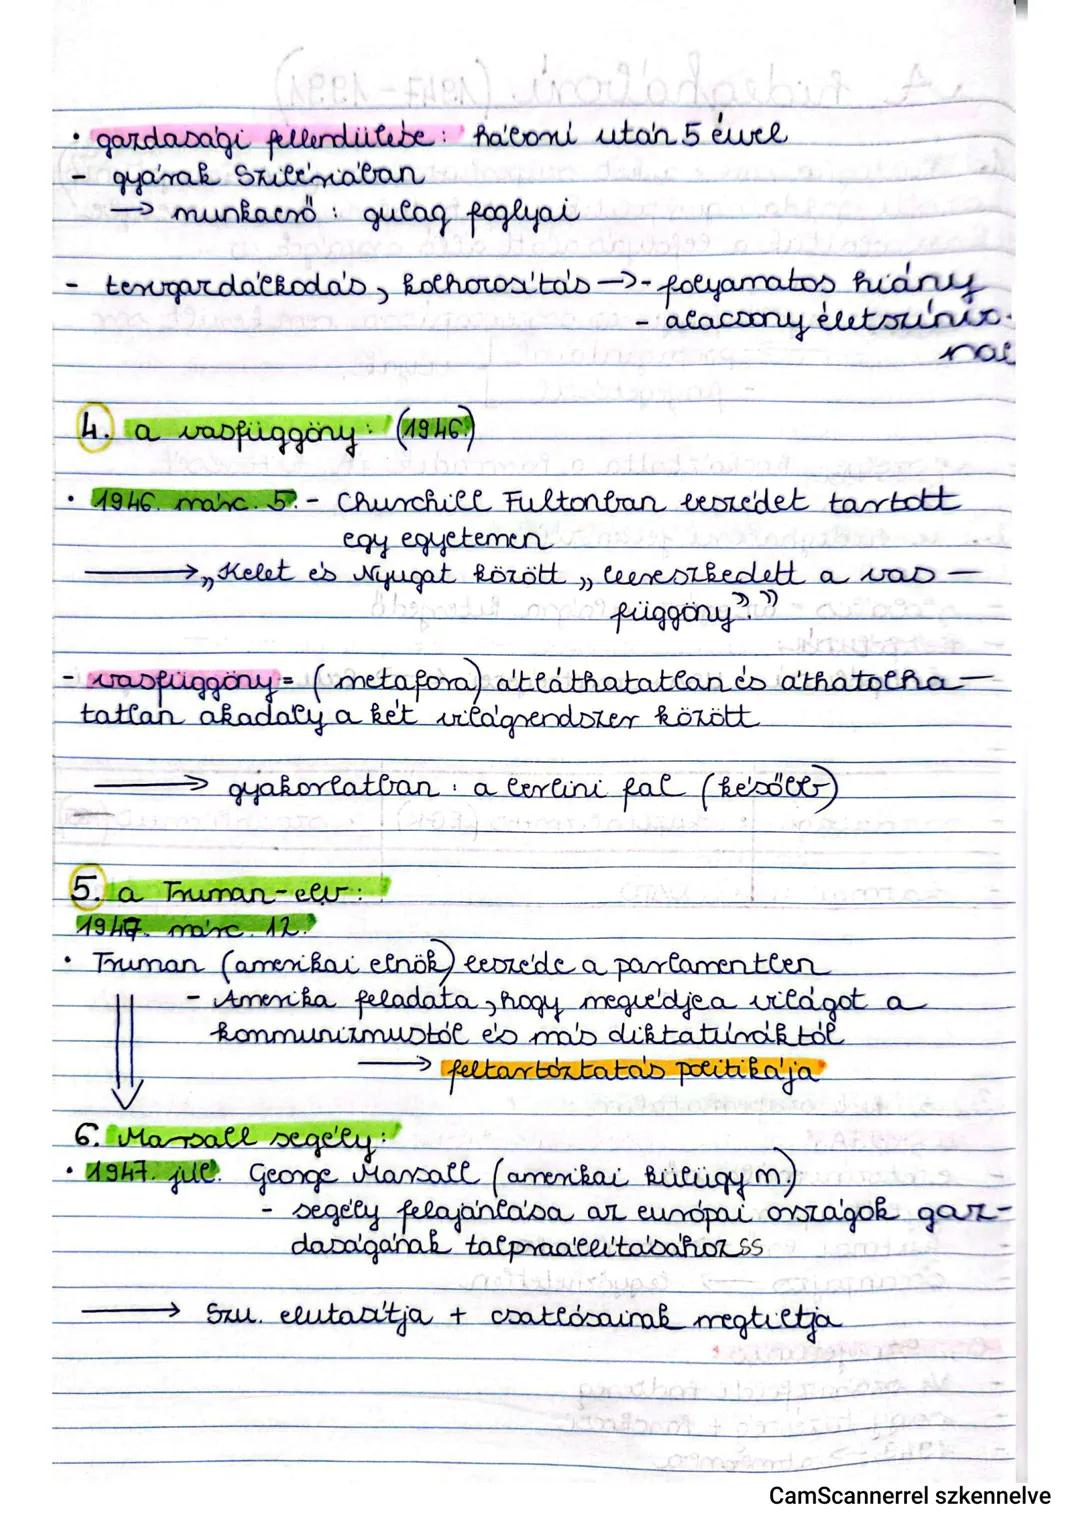 • gazdasági fellendülése: háború után 5 évvel
- gyárak Szibériában
→ munkaerő: gulag foglyai
- tervgazdálkodás, kolhozosítás →- folyamatos hiány
- alacsony életszínvo-
nal
4. a vasfüggöny: (1946.)
• 1946. márc. 5. - Churchill Fultonban beszédet tartott
egy egyetemen
→ „Kelet és Nyugat között „ leereszkedett a vas-
függöny”.”
- vasfüggöny = (metafora) átláthatatlan és áthatolha-
tatlan akadály a két világrendszer között
→ gyakorlatban: a berlini fal (később)
5. a Truman-elv:
1947. márc. 12.
• Truman (amerikai elnök) beszéde a parlamentben
- Amerika feladata, hogy megvédje a világot a
kommunizmustól és más diktatúráktól
→ feltartóztatás politikája
6. Marsall segély:
• 1947. júl. George Marsall (amerikai külügy m.)
- segély felajánlása az európai országok gaz-
daságának talpraállításához
→ Szu. elutasítja + csatlósainak megtiltja
CamScannerrel szkennelve